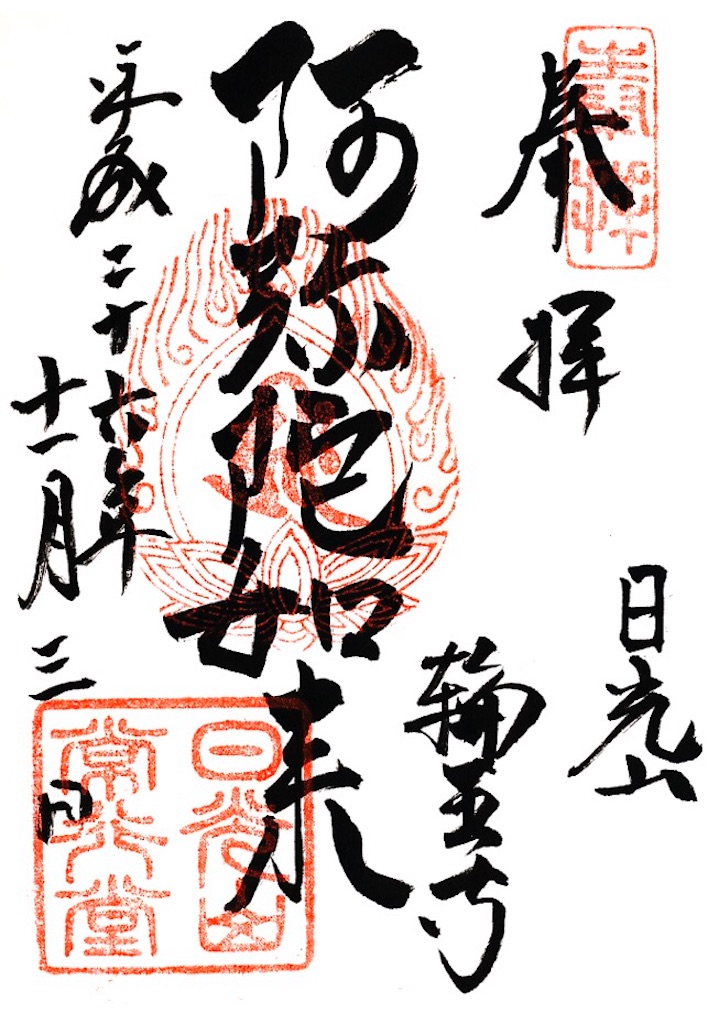 奉拝
奉拝
日光山
輪王寺
阿弥陀如来
平成二十六年
十一月三日
日光山
常行堂